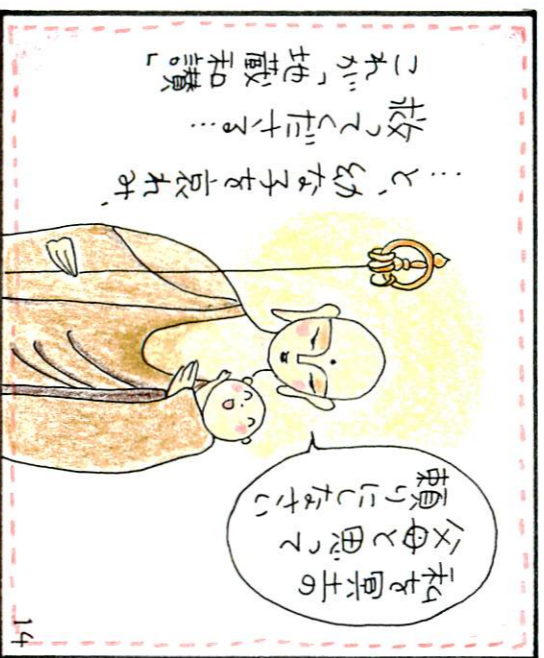 私を冥土の
父母と思って
頼りにしなさい
…と、幼な子を哀れみ、
救ってくださる…
これが「地蔵和讃」
14